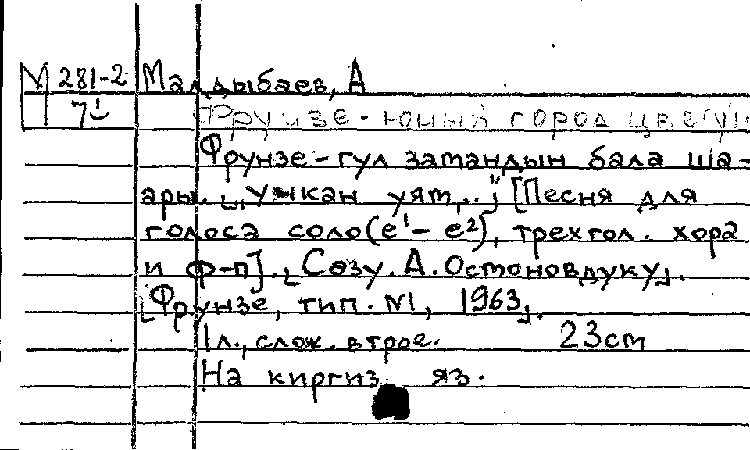 М 281-2 Малдыбаев, А
7
Фрунзе - юный город цвету
Фрунзе - гул замандын бала ша-
ары. „Учкан уят,..." [Песня для
голоса соло (e¹ - e²), трехгол. хора
и ф-п]. [Сөзү. А. Остоновдуку].
[Фрунзе, тип. №1, 1963].
1л., слож. втрое. 23cm
На киргиз яз.